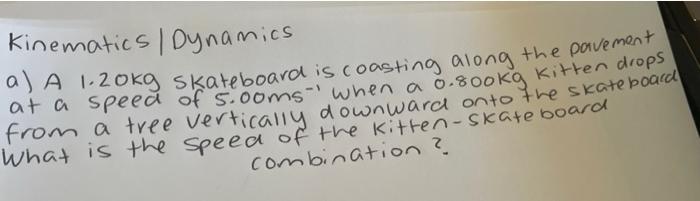 Kinematics | Dynamics
a) A 1.20kg skateboard is coasting along the pavement
at a speed of 5.00ms⁻¹ when a 0.800kg kitten drops
from a tree vertically downward onto the skateboard
What is the speed of the kitten-skateboard
combination?